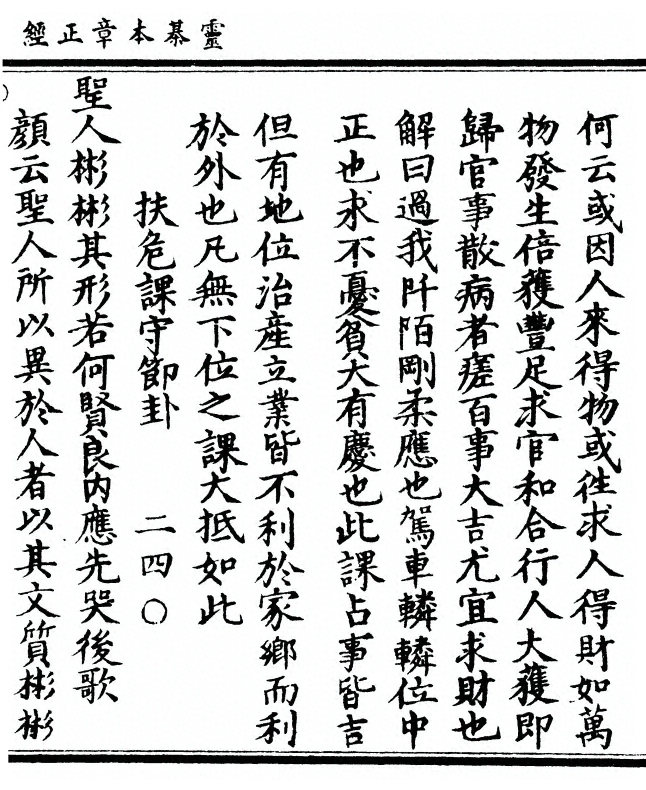 靈棊本章正經
何云或因人來得物或往求人得財如萬
物發生倍獲豐足求官和合行人大獲即
歸官事散病者瘥百事大吉尤宜求財也
解曰過我阡陌剛柔應也駕車轔轔位中
正也求不憂貧大有慶也此課占事皆吉
但有地位治產立業皆不利於家鄉而利
於外也凡無下位之課大抵如此
扶危課守節卦 二四〇
聖人彬彬其形若何賢良內應先哭後歌
顏云聖人所以異於人者以其文質彬彬